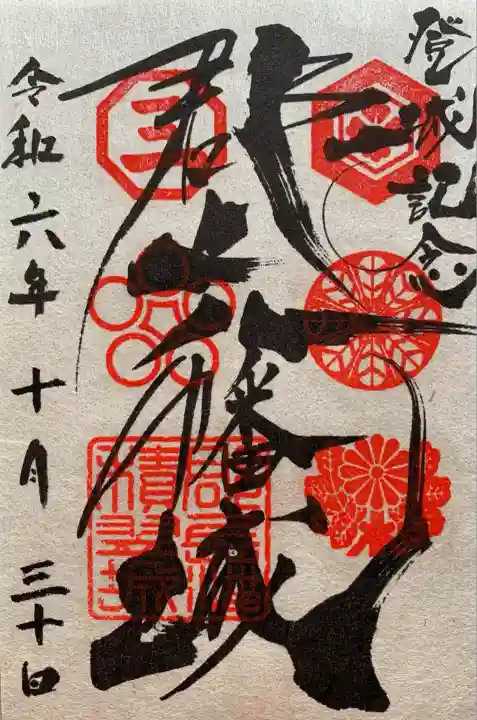 登城記念
郡上八幡城
令和六年十月三十日